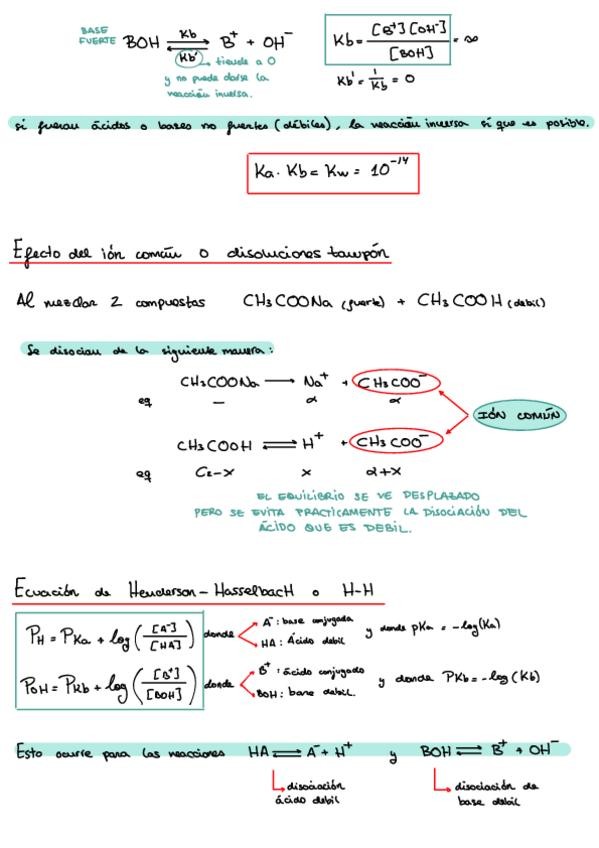 BASE FUERTE BOH ⇌ B⁺ + OH⁻ Kb Kb' Kb = [B⁺][OH⁻] / [BOH] = ∞
tiende a 0
y no puede darse la
reacción inversa.
Kb' = 1/Kb = 0
si fueran ácidos o bases no fuertes (débiles), la reacción inversa sí que es posible.
Ka · Kb = Kw = 10⁻¹⁴
Efecto del ión común o disoluciones tampón
Al mezclar 2 compuestos CH₃COONa (fuerte) + CH₃COOH (debil)
Se disocian de la siguiente manera:
CH₃COONa → Na⁺ + CH₃COO⁻
eq — α α
IÓN COMÚN
CH₃COOH ⇌ H⁺ + CH₃COO⁻
eq C₂-x x α+x
EL EQUILIBRIO SE VE DESPLAZADO
PERO SE EVITA PRACTICAMENTE LA DISOCIACIÓN DEL
ÁCIDO QUE ES DEBIL.
Ecuación de Henderson-HasselbacH o H-H
PH = PKa + log([A⁻]/[HA]) donde A⁻: base conjugada HA: Ácido debil y donde pKa = -log(Ka)
POH = PKb + log([B⁺]/[BOH]) donde B⁺: ácido conjugado BOH: base debil. y donde PKb = -log(Kb)
Esto ocurre para las reacciones HA ⇌ A⁻ + H⁺ y BOH ⇌ B⁺ + OH⁻
disociación ácido debil
disociación de base debil